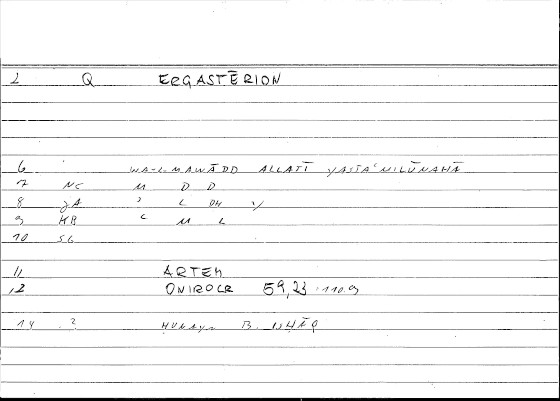 2 Q ERGASTĒRION
6 WA-L-MAWĀDD ALLATĪ YASTAʿMILŪNAHĀ
7 NC M D D
8 JA ʾ L DH Y
9 KB ʿ M L
10 SG
11 ARTEM
12 ONIROCR 59,23 110.9
14 2 HUNAYN B. ISḤĀQ